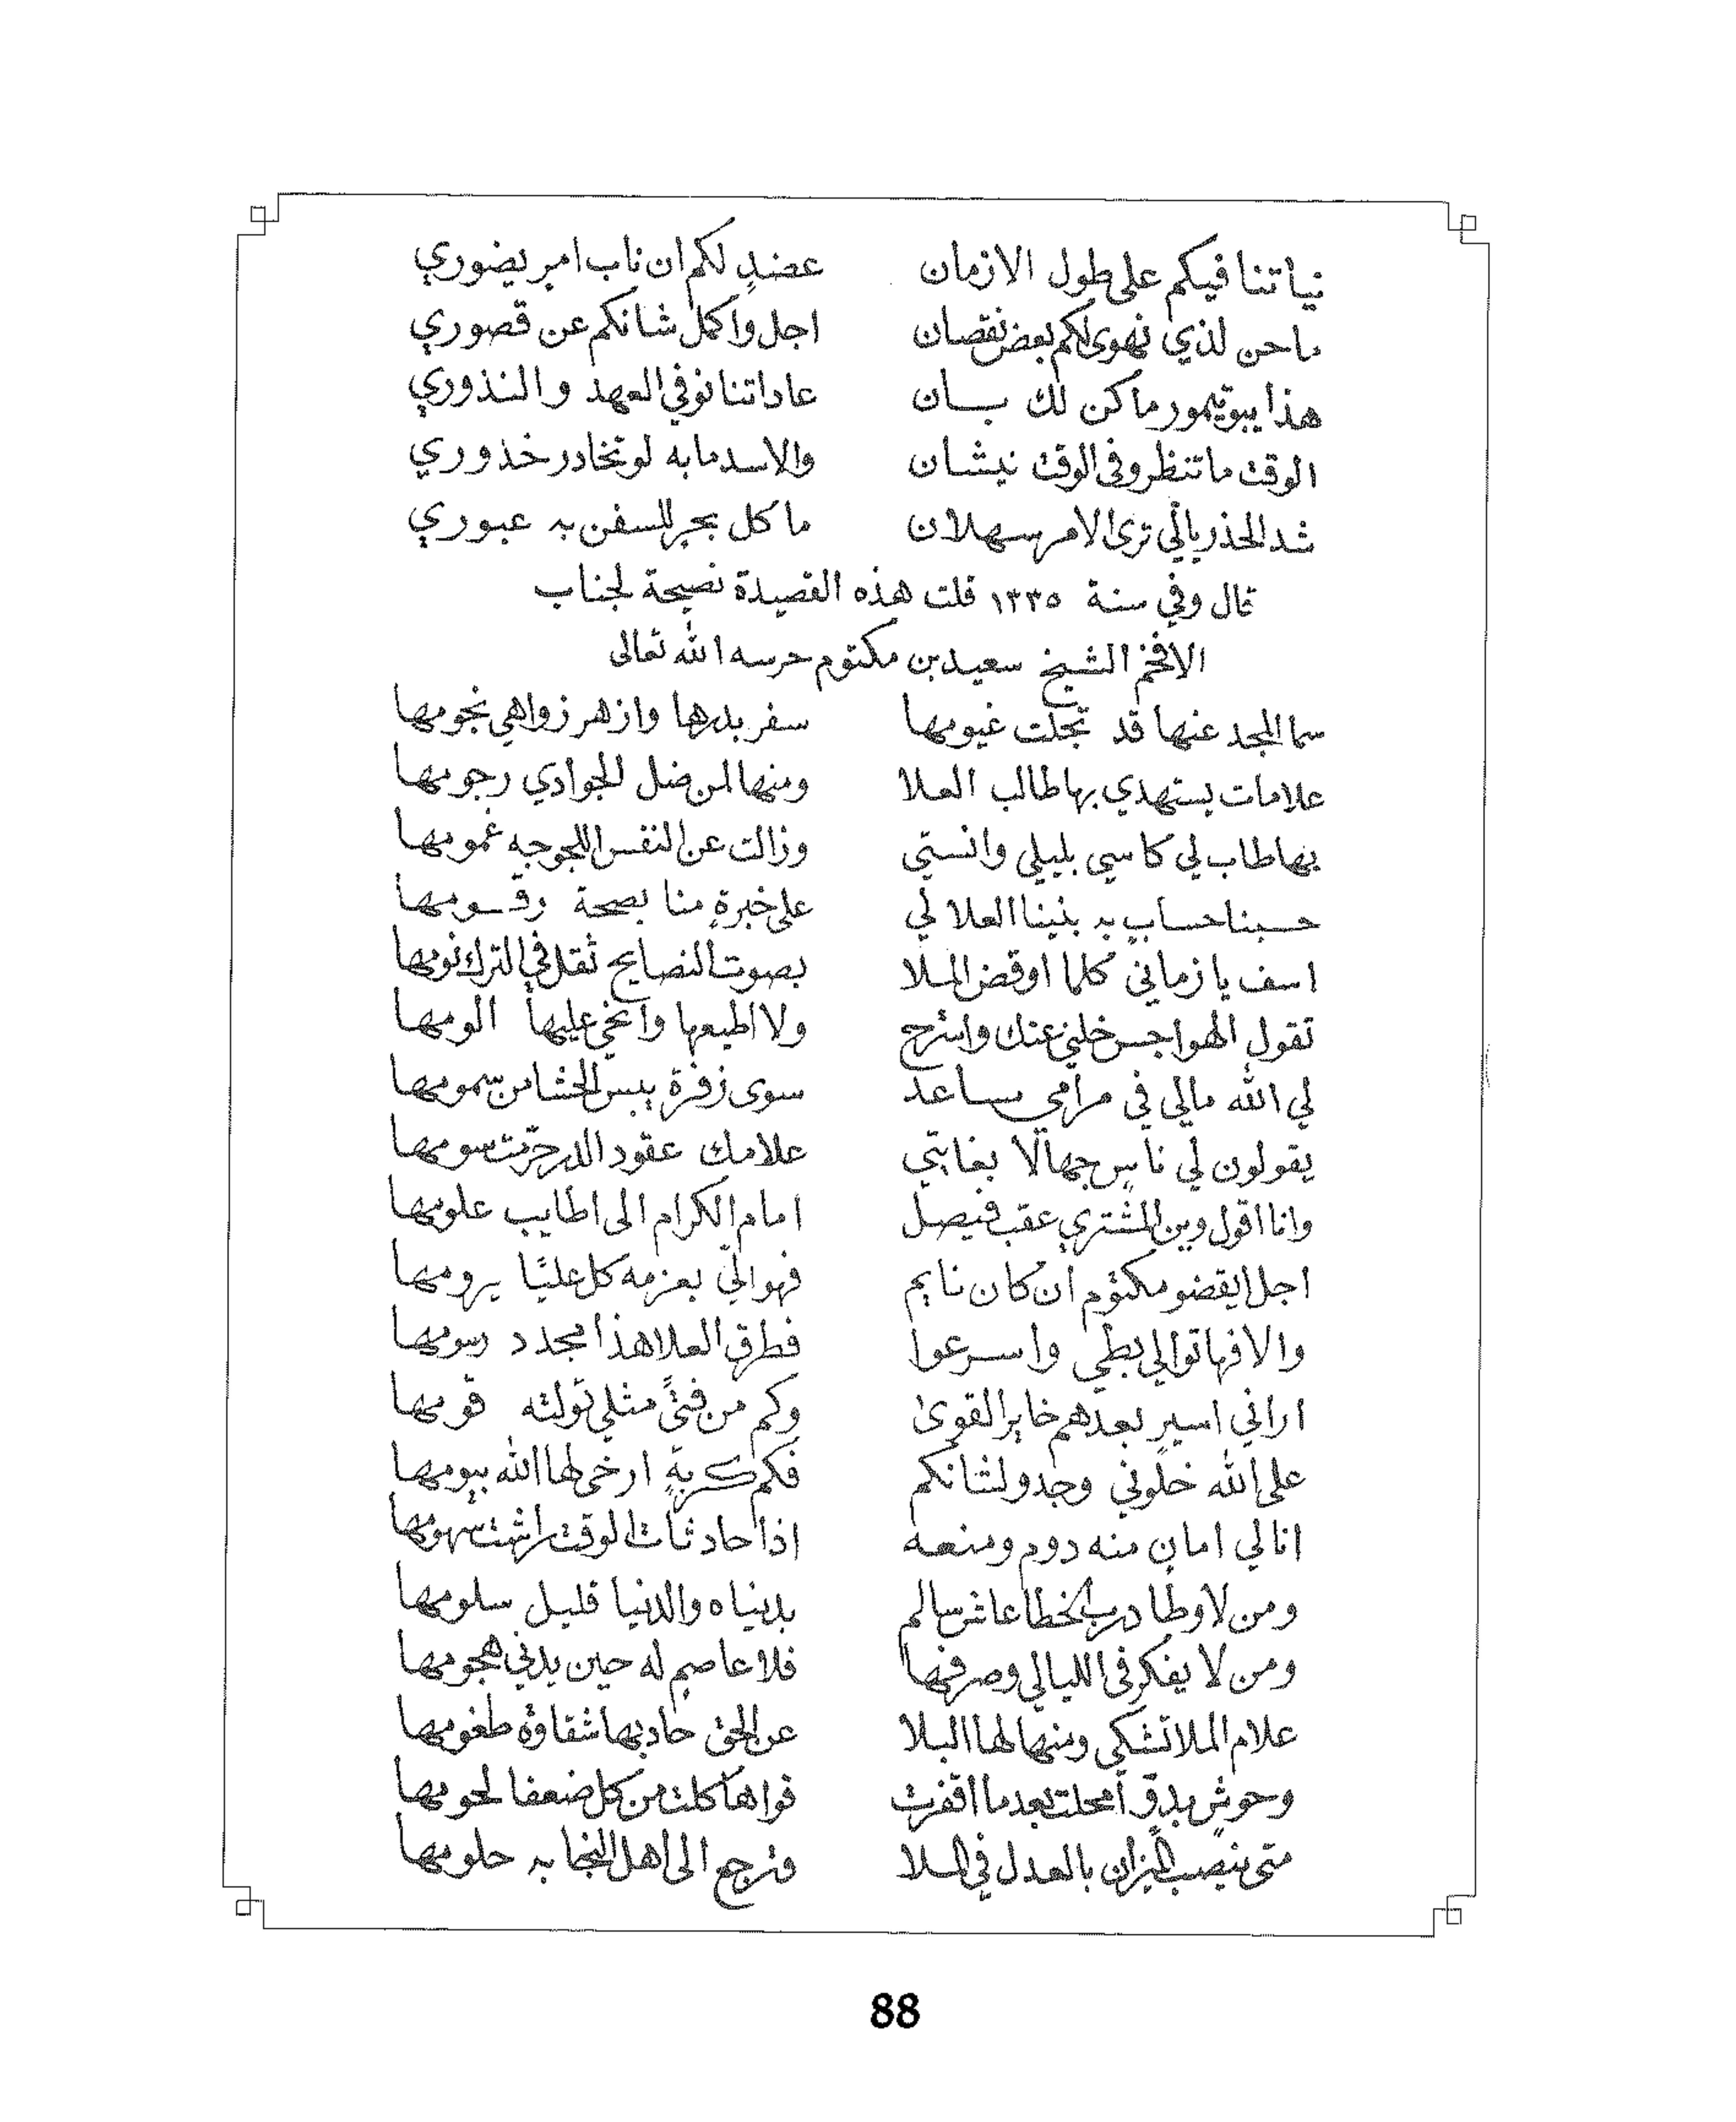 نياتنا فيكم على طول الازمان عضدٍ لكم ان ناب امرٍ يضوري
ماحن لذي نهوى لكم بعض نقصان اجل واكمل شانكم عن قصوري
هذا يبو تيمور ماكن لك بان عاداتنا نوفي العهد والنذوري
الوقت ما تنظر وفى الوقت نيشان والاسد مابه لو تخادر خذوري
شد الحذر يالّي ترى الامر سهلان ما كل بحرٍ للسفن به عبوري
قال وفي سنة ١٣٣٥ قلت هذه القصيدة نصيحة لجناب
الافخم الشيخ سعيد بن مكتوم حرسه الله تعالى
سما المجد عنها قد تجلت غيومها سفر بدرها وازهر زواهي نجومها
علامات يستهدي بها طالب العلا ومنها لمن ضل الجوادي رجومها
بها طاب لي كاسي بليلي وانستي وزالت عن النفس اللجوجه غمومها
حسبنا حسابٍ به بنينا العلا لي على خبرةٍ منا بصحة رقومها
اسف يا زماني كلما اوقض الملا بصوت النصايح ثقل في الترك نومها
تقول الهواجس خلني عنك واسترح ولا اطيعها وانخي عليها الومها
لي الله مالي في مرامي مساعد سوى زفرة يبس الحشا من سمومها
يقولون لي ناسٍ جهالًا بغايتي علامك عقود الدر حرّمت سومها
وانا اقول وين المشتري عقب فيصل امام الكرام الى اطايب علومها
اجل ايقضو مكتوم ان كان نايم فهو الّي بعزمه كل عليًا يرومها
والا فهاتوا لي بطي واسرعوا فطرق العلا هذا مجدد رسومها
اراني اسير بعدهم خاير القوى وكم من فتىً مثلي تولته قومها
على الله خلوني وجدو لشانكم فكم كربةٍ ارخى لها الله بيومها
انا لي امانٍ منه دوم ومنعه اذا حادثات الوقت راشت سهومها
ومن لا وطا درب الخطا عاش سالم بدنياه والدنيا قليل سلومها
ومن لا يفكر فى الليالي وصرفها فلا عاصمٍ له حين يدني هجومها
علام الملا تشكي ومنها لها البلا عن الحق حاد بها شقاوة طغومها
وحوشٍ بدوٍّ أمحلت بعدما اقفرت قواها كلت من كل ضعفا لحومها
متى ننصب الميزان بالعدل في الملا وترجع الى اهل النجابه حلومها
88